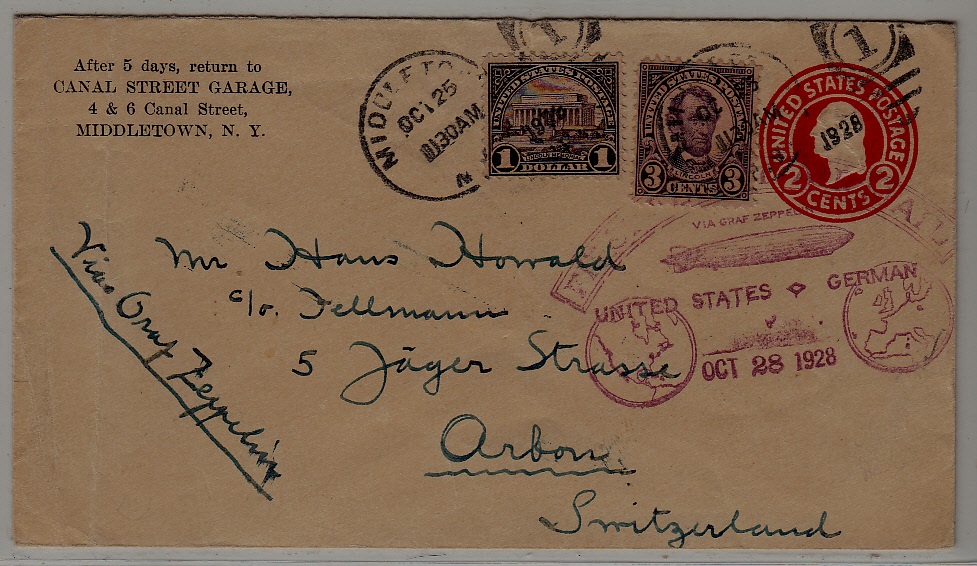 After 5 days, return to
CANAL STREET GARAGE,
4 & 6 Canal Street,
MIDDLETOWN, N. Y.
MIDDLETO
OCT 25
1130AM
N
1
UNITED STATES POSTAGE
LINCOLN MEMORIAL
1 DOLLAR 1
1928
UNITED STATES POSTAGE
LINCOLN
3 CENTS 3
1
UNITED STATES POSTAGE
1928
2 CENTS 2
VIA GRAF ZEPPEL
UNITED STATES GERMAN
OCT 28 1928
Via Graf Zeppelin
Mr Hans Howald
c/o. Fellmann
5 Jäger Strasse
Arbon
Switzerland